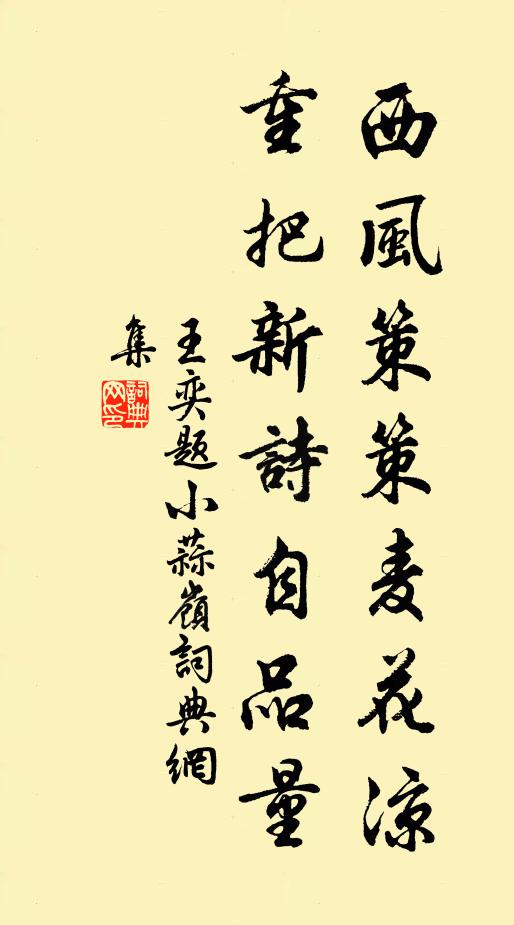 西風策策麦花涼
重把新詩自品量
王奕题小蒜嶺詞典網
集
詞典
网印